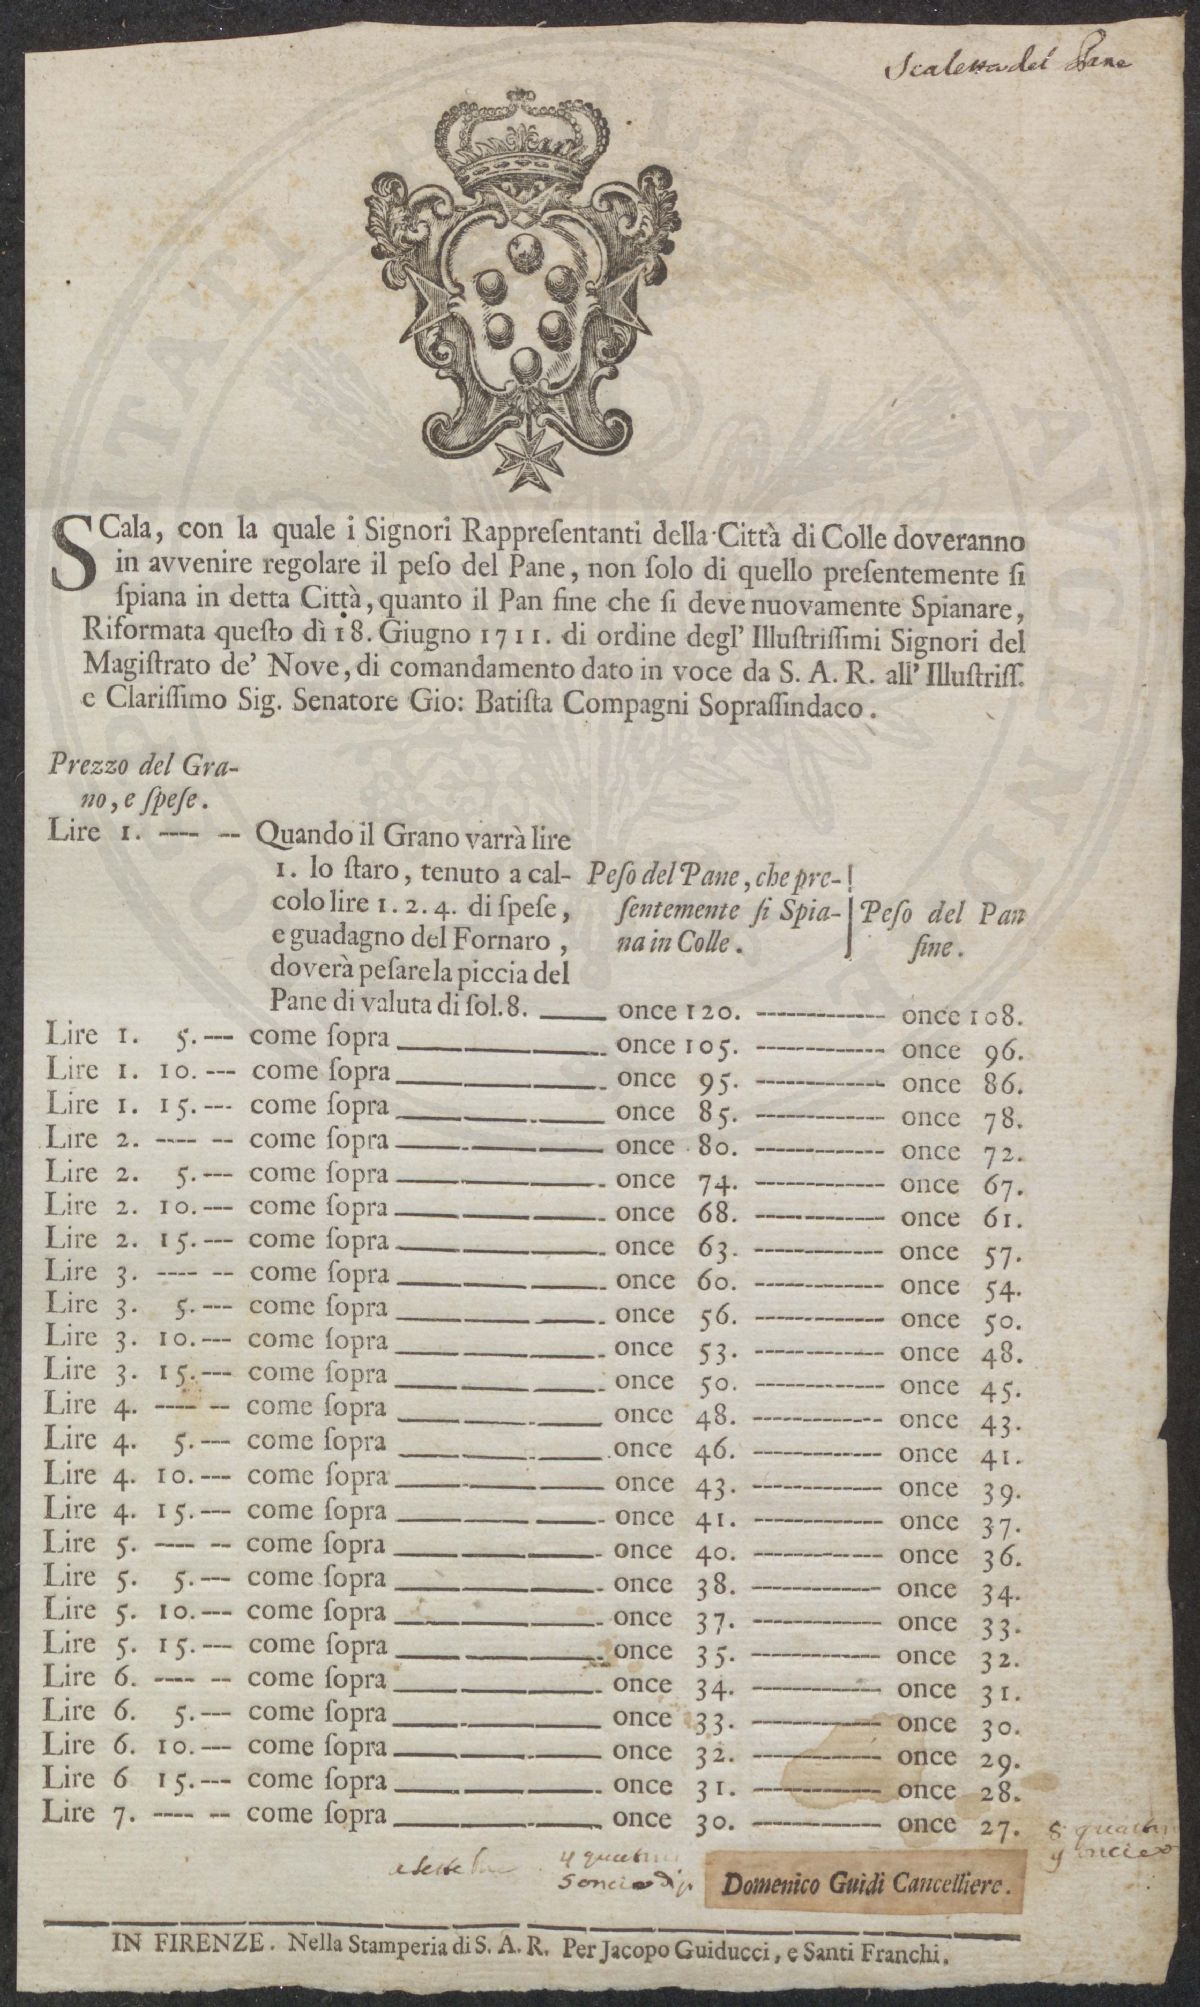 Scaletta del Pane
SCala, con la quale i Signori Rappreſentanti della Città di Colle doveranno
in avvenire regolare il peſo del Pane, non ſolo di quello preſentemente ſi
ſpiana in detta Città, quanto il Pan fine che ſi deve nuovamente Spianare,
Riformata queſto dì 18. Giugno 1711. di ordine degl' Illuſtriſſimi Signori del
Magiſtrato de' Nove, di comandamento dato in voce da S. A. R. all' Illuſtriſſ.
e Clariſſimo Sig. Senatore Gio: Batiſta Compagni Sopraſſindaco.
Prezzo del Gra-
no, e ſpeſe.
Lire 1. ---- -- Quando il Grano varrà lire
1. lo ſtaro, tenuto a cal-
colo lire 1. 2. 4. di ſpeſe,
e guadagno del Fornaro,
doverà peſare la piccia del
Pane di valuta di ſol. 8.
Peſo del Pane, che pre-
ſentemente ſi Spia-
na in Colle.
Peſo del Pan
fine.
once 120. ------------- once 108.
Lire 1. 5. --- come ſopra once 105. ------------- once 96.
Lire 1. 10. --- come ſopra once 95. ------------- once 86.
Lire 1. 15. --- come ſopra once 85. ------------- once 78.
Lire 2. ---- -- come ſopra once 80. ------------- once 72.
Lire 2. 5. --- come ſopra once 74. ------------- once 67.
Lire 2. 10. --- come ſopra once 68. ------------- once 61.
Lire 2. 15. --- come ſopra once 63. ------------- once 57.
Lire 3. ---- -- come ſopra once 60. ------------- once 54.
Lire 3. 5. --- come ſopra once 56. ------------- once 50.
Lire 3. 10. --- come ſopra once 53. ------------- once 48.
Lire 3. 15. --- come ſopra once 50. ------------- once 45.
Lire 4. ---- -- come ſopra once 48. ------------- once 43.
Lire 4. 5. --- come ſopra once 46. ------------- once 41.
Lire 4. 10. --- come ſopra once 43. ------------- once 39.
Lire 4. 15. --- come ſopra once 41. ------------- once 37.
Lire 5. ---- -- come ſopra once 40. ------------- once 36.
Lire 5. 5. --- come ſopra once 38. ------------- once 34.
Lire 5. 10. --- come ſopra once 37. ------------- once 33.
Lire 5. 15. --- come ſopra once 35. ------------- once 32.
Lire 6. ---- -- come ſopra once 34. ------------- once 31.
Lire 6. 5. --- come ſopra once 33. ------------- once 30.
Lire 6. 10. --- come ſopra once 32. ------------- once 29.
Lire 6 15. --- come ſopra once 31. ------------- once 28.
Lire 7. ---- -- come ſopra once 30. ------------- once 27.
Domenico Guidi Cancelliere.
IN FIRENZE. Nella Stamperia di S. A. R. Per Jacopo Guiducci, e Santi Franchi.